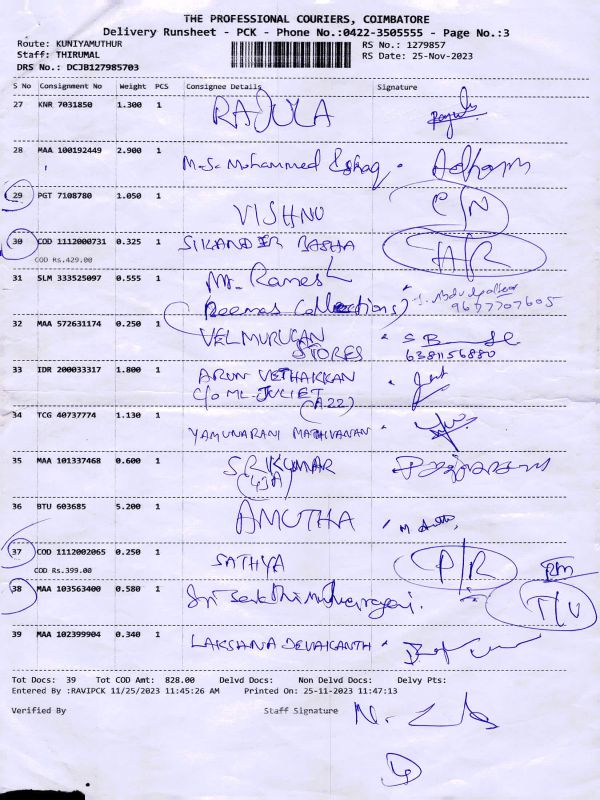 THE PROFESSIONAL COURIERS, COIMBATORE
Delivery Runsheet - PCK - Phone No.:0422-3505555 - Page No.:3
Route: KUNIYAMUTHUR RS No.: 1279857
Staff: THIRUMAL RS Date: 25-Nov-2023
DRS No.: DCJB127985703
S No Consignment No Weight PCS Consignee Details Signature
27 KNR 7031850 1.300 1 RAJULA
28 MAA 100192449 2.900 1 M.S. Mohammed Ishaq. Adham
29 PGT 7108780 1.050 1 VISHNU C/N
30 COD 1112000731 0.325 1 SIKANDER BASHA A/R
COD Rs.429.00
31 SLM 333525097 0.555 1 Mr. Ramesh
Reemas Collections) 9677707605
32 MAA 572631174 0.250 1 VELMURUGAN
STORES 6381156880
33 IDR 200033317 1.800 1 ARUN VETHAKKAN
C/O ML-JULIET
(A22)
34 TCG 40737774 1.130 1 YAMUNARANI MATHIVANAN
35 MAA 101337468 0.600 1 SRIKUMAR
(43A)
36 BTU 603685 5.200 1 AMUTHA
37 COD 1112002065 0.250 1 SATHYA P/R
COD Rs.399.00
38 MAA 103563400 0.580 1 Sri T/U
39 MAA 102399904 0.340 1 LAKSHANA DEVAIKANTH
Tot Docs: 39 Tot COD Amt: 828.00 Delvd Docs: Non Delvd Docs: Delvy Pts:
Entered By :RAVIPCK 11/25/2023 11:45:26 AM Printed On: 25-11-2023 11:47:13
Verified By Staff Signature